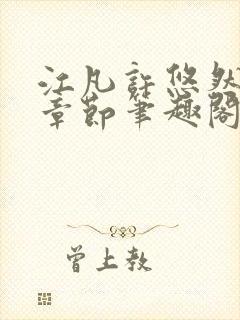 江凡許悠然
章節筆趣閣
曾上教